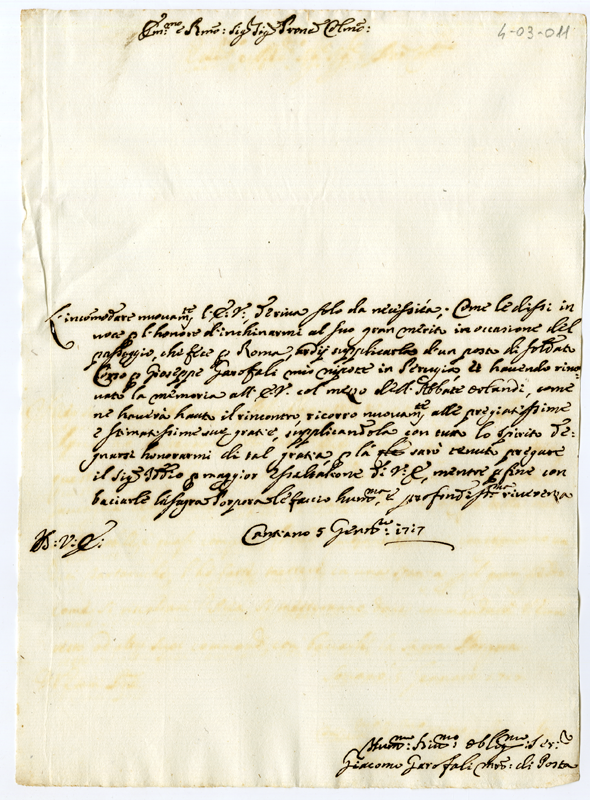 4-03-011
Em.mo e Rmo: Sig.r Sig.r Prone Colmo:
L'incomodare nuovam.te l'E.V. deriva solo da necessità; Come le dissi in
voce p l'honore d'inchinarmi al suo gran merito in occasione del
passaggio, che fece p Roma, ardij supplicarla d'un posto di soldato
Corso p Gioseppe Garofali mio nipote in Perugia, et havendo rino-
vato la memoria all'E.V. col mezo dell'Abbate Orlandi, come
ne haverà hauto il rincontro, ricorro nuovam.te alle pregiatissime
e stimatissime sue gratie, supplicandola con tutto lo spirito de-
gnarsi honorarmi di tal gratia, p la qle sarò tenuto pregare
il Sig.r Iddio p maggior esaltatione di V.E., mentre p fine con
baciarle la sagra Porpora le faccio hum.ma, e profondiss.ma riverenza
D: V: E:
Cantiano 5 Genn.ro 1717
Hum.mo obblig.mo Ser.re
Giacomo Garofali mro: di Posta